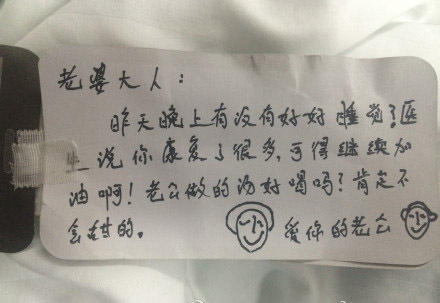 老婆大人：
昨天晚上有没有好好睡觉？医
生说你康复了很多，可得继续加
油啊！老公做的汤好喝吗？肯定不
会甜的。
爱你的老公